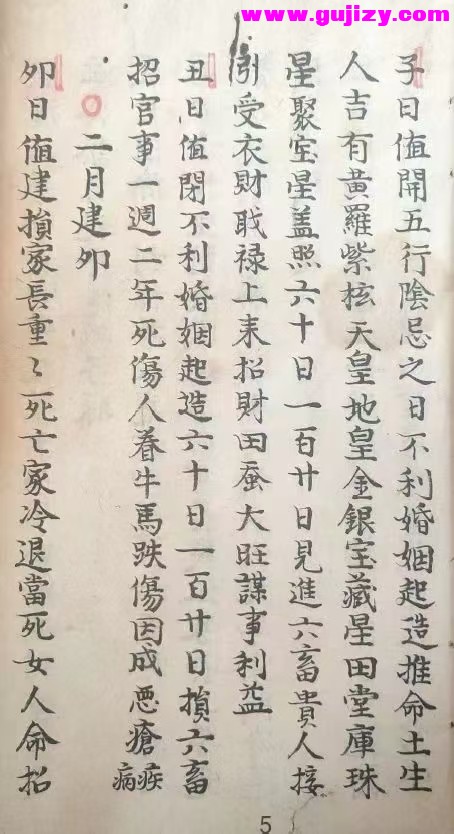 www.gujizy.com
子日値開五行陰忌之日不利婚姻起造推命土生
人吉有黃羅紫核天皇地皇金銀宝藏星田堂庫珠
星聚宝星盖照六十日一百廿日見進六畜貴人接
引受衣財戢禄上耒招財田蚕大旺謀事利益
丑日值閉不利婚姻起造六十日一百廿日損六畜
招官事一週二年死傷人眷牛馬跌傷因成悪瘡疾病
二月建夘
夘日値建損家長重々死亡家冷退當死女人命招
5